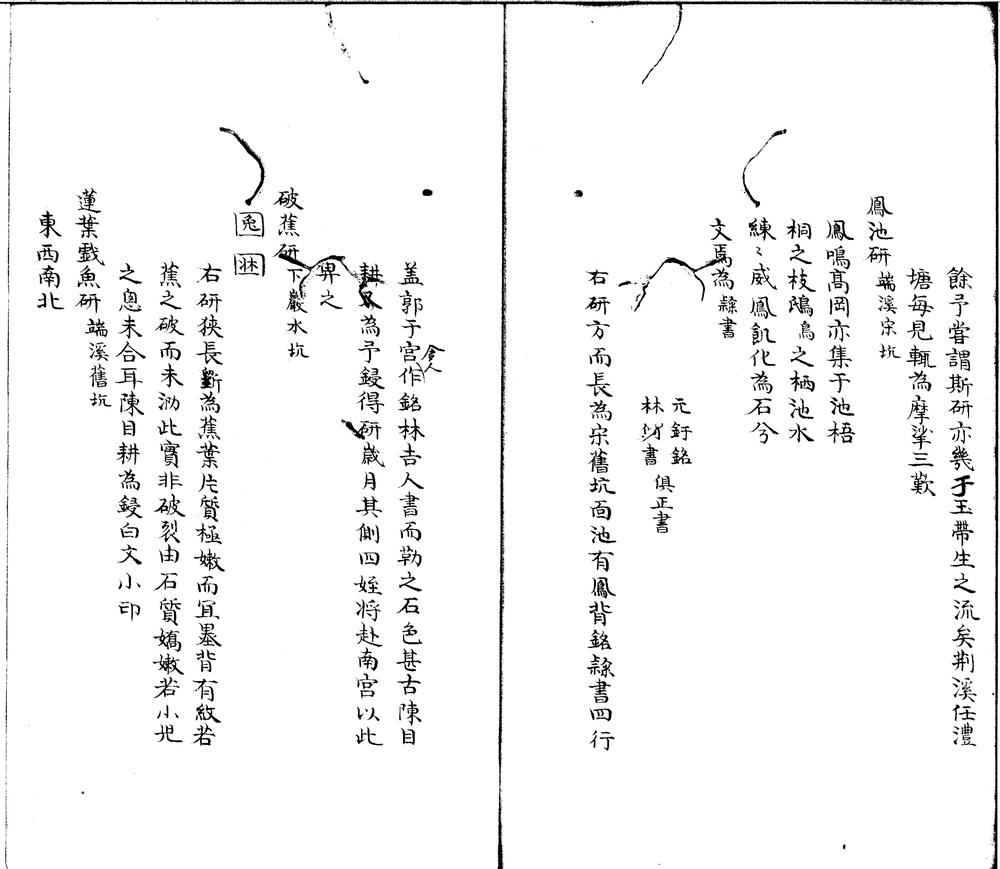 餘予嘗謂斯研亦幾于玉帶生之流矣荆溪任澧
塘每見輒為摩挲三歎
鳳池研 端溪宋坑
鳳鳴髙岡亦集于池梧
桐之枝鳲鳥之栖池水
練〻威鳳飢化為石兮
文焉為 隸書
元釪銘
林書 俱正書
右研方而長為宋舊坑面池有鳳背銘隸書四行
盖郭于宮作銘林吉人書而勒之石色甚古陳目
舍人
耕為予鋟得研歲月其側四姪将赴南宮以此
畀之
破蕉研 下巖水坑
兔
右研狹長斵為蕉葉片質極嫰而宜墨背有紋若
蕉之破而未泐此實非破裂由石質嬌嫰若小兒
之囱未合耳陳目耕為鋟白文小印
蓮葉戲魚研 端溪舊坑
東西南北